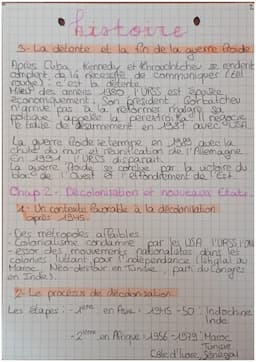 Histoire
3- La détente et la fin de la guerre froide
Après Cuba, Kennedy et Khrouchtchev se rendent
compte de la nécessité de communiquer (tél
rouge) : c'est la détente.
Milieu des années 1980 l'URSS est épuisée
économiquement. Son président Gorbatchev
n'arrive pas à la réformer malgré sa
politique appelée la perestroïka. Il négocie
le traité de désarmement en 1987 avec USA
La guerre froide se termine en 1989 avec la
chute du mur et réunification de l'Allemagne
En 1991 l'URSS disparait.
La guerre froide se conclue par la victoire du
bloc de l'Ouest et l'effondrement de l'Est.
Chap 2 - Décolonisation et nouveaux Etats.
1- Un contexte favorable à la décolonisation
après 1945.
- Des métropoles affaiblies
- Colonialisme condamné par les USA l'URSS l'ONU
- essor des mouvements nationalistes dans les
colonies luttant pour l'indépendance (Istiqlal au
Maroc, Néo-destour en Tunisie, parti du Congrès
en Inde).
2- Le processus de décolonisation.
Les étapes : - 1ère en Asie : 1945 - 50 : Indochine
Inde
- 2ème en Afrique : 1956 - 1979 : Maroc
Tunisie
Côte d'Ivoire, Sénégal